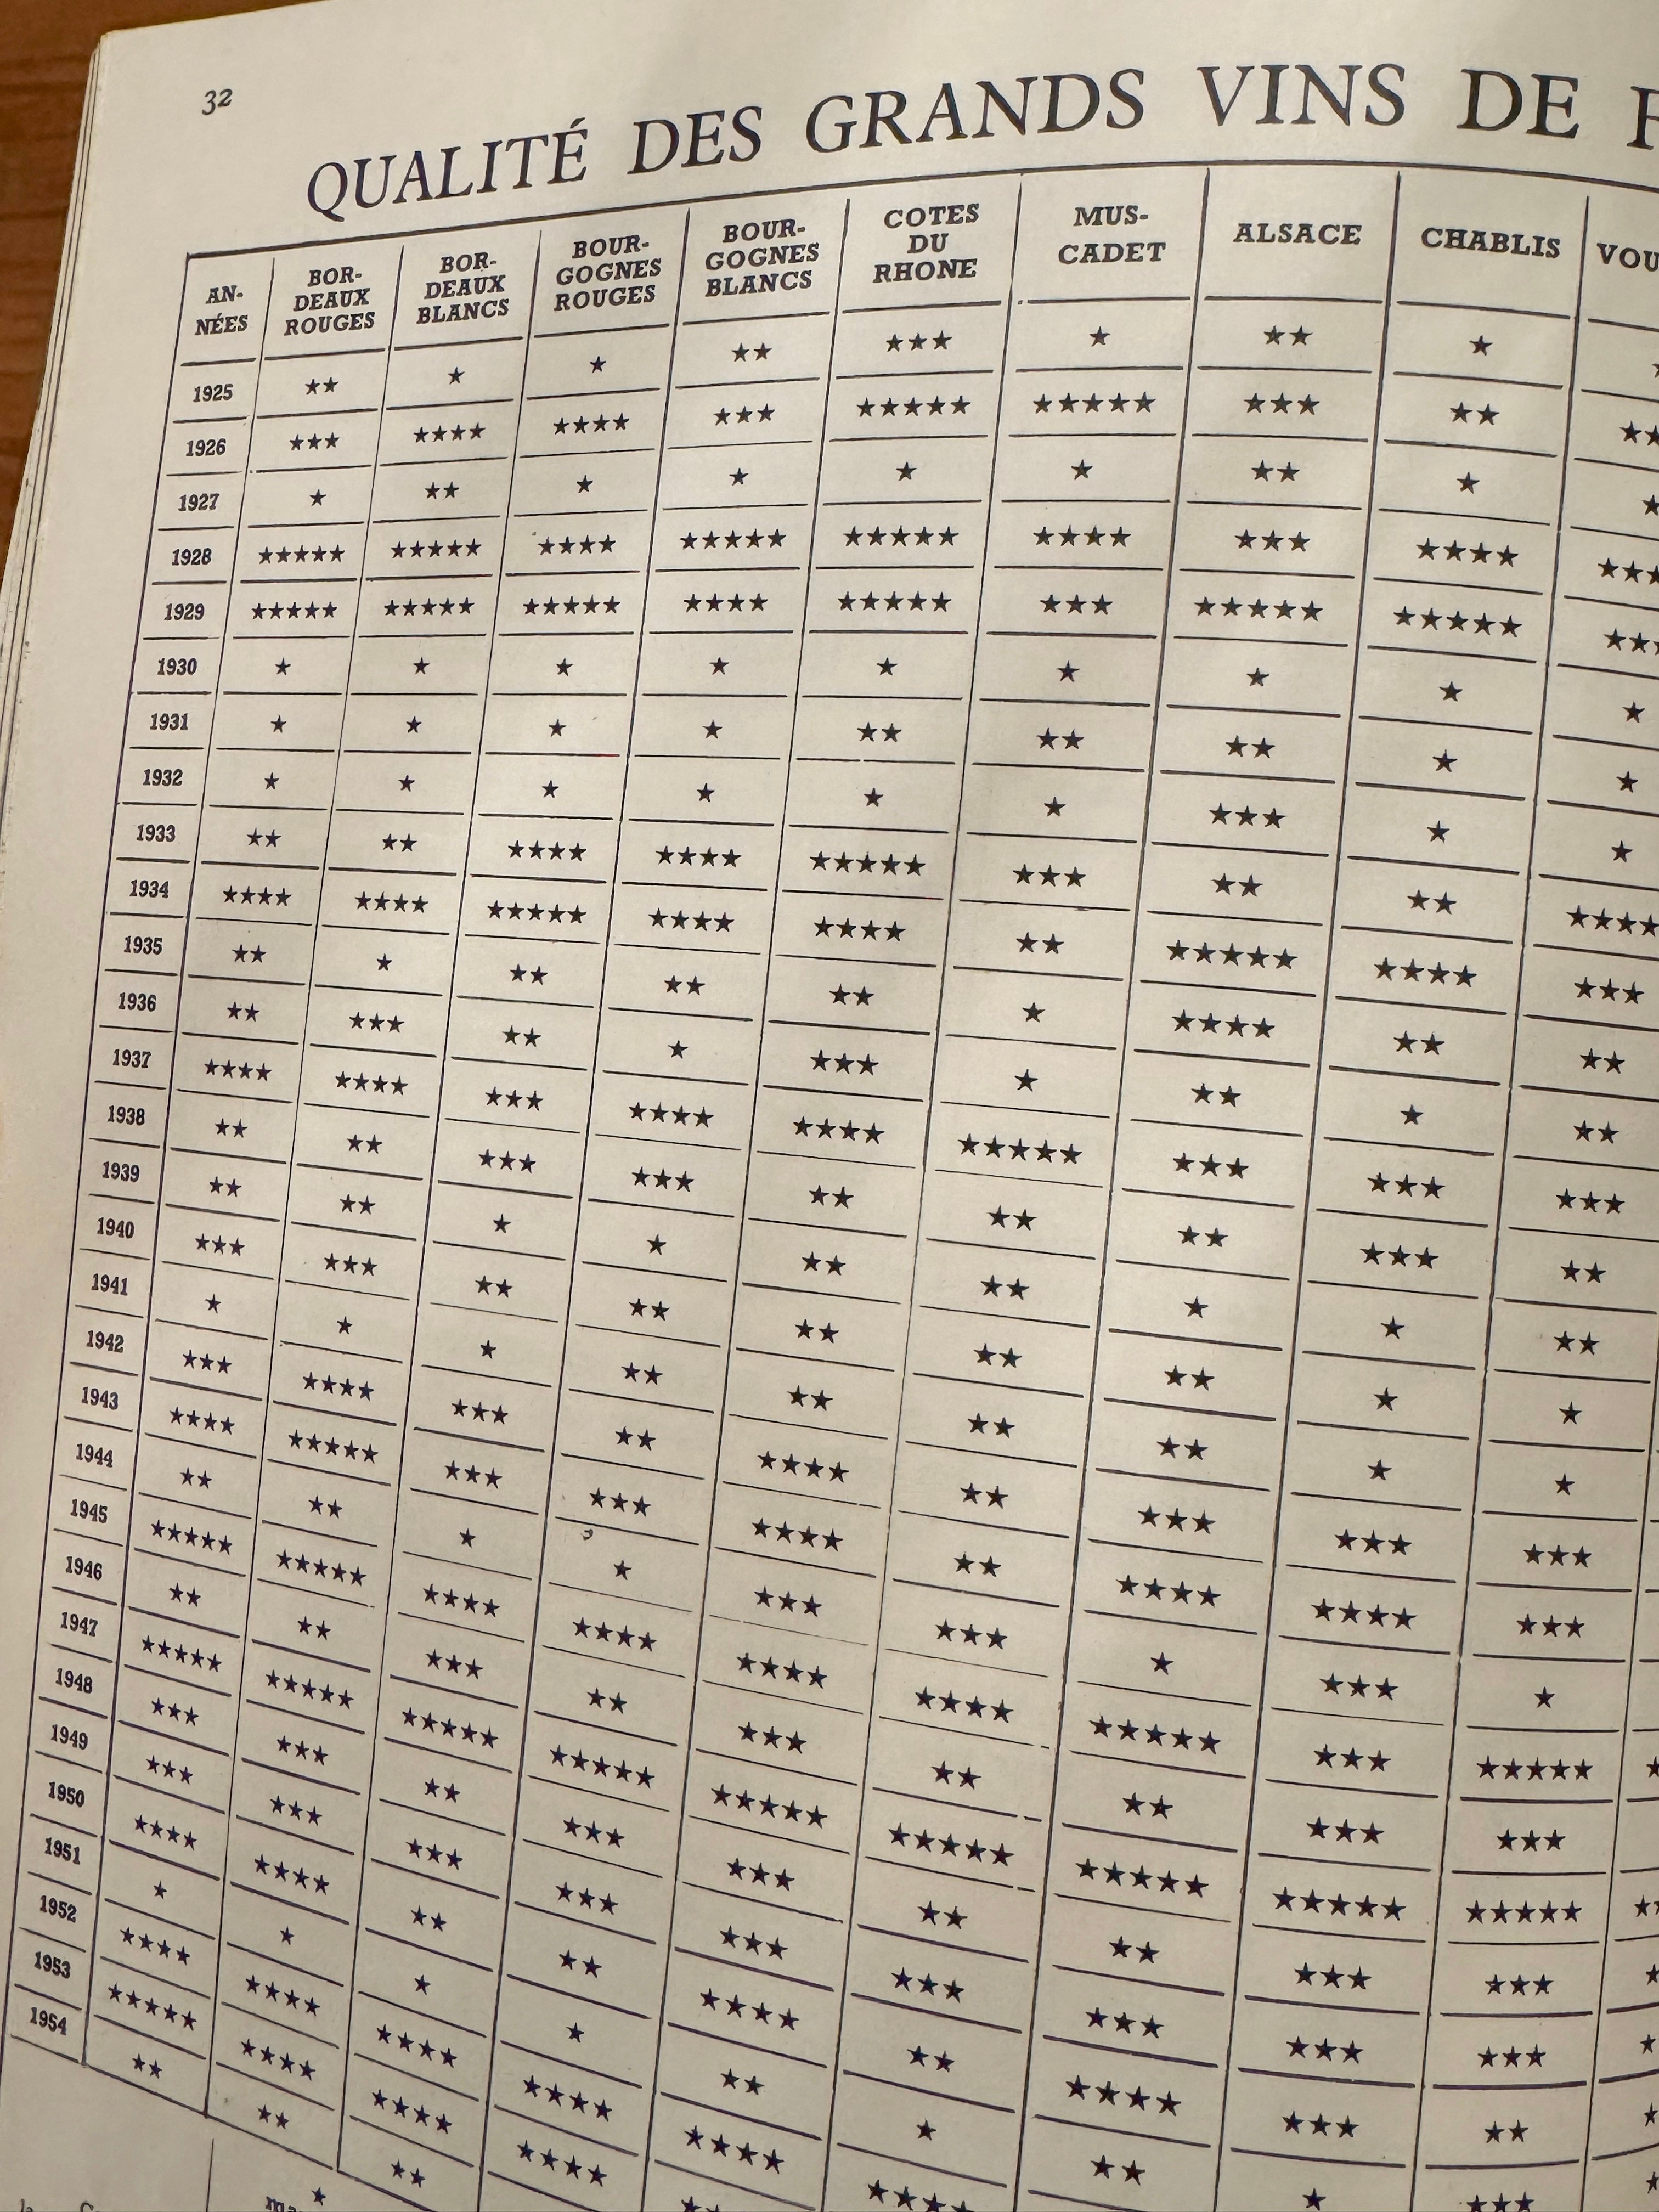 32
QUALITÉ DES GRANDS VINS DE
AN-
NÉES
BOR-
DEAUX
ROUGES
BOR-
DEAUX
BLANCS
BOUR-
GOGNES
ROUGES
BOUR-
GOGNES
BLANCS
COTES
DU
RHONE
MUS-
CADET
ALSACE
CHABLIS
VOU
1925 ★★ ★ ★ ★★ ★★★ ★ ★★ ★
1926 ★★★ ★★★★ ★★★★ ★★★ ★★★★★ ★★★★★ ★★★ ★★
1927 ★ ★★ ★ ★ ★ ★ ★★ ★
1928 ★★★★★ ★★★★★ ★★★★ ★★★★★ ★★★★★ ★★★★ ★★★ ★★★★
1929 ★★★★★ ★★★★★ ★★★★★ ★★★★ ★★★★★ ★★★ ★★★★★ ★★★★★
1930 ★ ★ ★ ★ ★ ★ ★ ★ ★
1931 ★ ★ ★ ★ ★★ ★★ ★★ ★ ★
1932 ★ ★ ★ ★ ★ ★ ★★★ ★ ★
1933 ★★ ★★ ★★★★ ★★★★ ★★★★★ ★★★ ★★ ★★ ★★★★
1934 ★★★★ ★★★★ ★★★★★ ★★★★ ★★★★ ★★ ★★★★★ ★★★★ ★★★
1935 ★★ ★ ★★ ★★ ★★ ★ ★★★★ ★★ ★★
1936 ★★ ★★★ ★★ ★ ★★★ ★ ★★ ★ ★★
1937 ★★★★ ★★★★ ★★★ ★★★★ ★★★★ ★★★★★ ★★★ ★★★ ★★★
1938 ★★ ★★ ★★★ ★★★ ★★ ★★ ★★ ★★★ ★★
1939 ★★ ★★ ★ ★ ★★ ★★ ★ ★ ★★
1940 ★★★ ★★★ ★★ ★★ ★★ ★★ ★★ ★ ★
1941 ★ ★ ★ ★★ ★★ ★★ ★★ ★ ★
1942 ★★★ ★★★★ ★★★ ★★ ★★★★ ★★ ★★★ ★★★ ★★★
1943 ★★★★ ★★★★★ ★★★ ★★★ ★★★★ ★★ ★★★★ ★★★★ ★★★
1944 ★★ ★★ ★ ★ ★★★ ★★★ ★ ★★★ ★
1945 ★★★★★ ★★★★★ ★★★★ ★★★★ ★★★★ ★★★★ ★★★★★ ★★★ ★★★★★
1946 ★★ ★★ ★★★ ★★ ★★★ ★★ ★★ ★★★ ★★★
1947 ★★★★★ ★★★★★ ★★★★★ ★★★★★ ★★★★★ ★★★★★ ★★★★★ ★★★★★ ★★★★★
1948 ★★★ ★★★ ★★ ★★★ ★★★ ★★ ★★ ★★★ ★★★
1949 ★★★ ★★★ ★★★ ★★★ ★★★ ★★★ ★★★ ★★★ ★★★
1950 ★★★★ ★★★★ ★★ ★★ ★★★★ ★★ ★★★★ ★★★ ★★
1951 ★ ★ ★ ★ ★★ ★ ★★ ★ ★★★
1952 ★★★★ ★★★★ ★★★★ ★★★★ ★★★★ ★★★★
1953 ★★★★★ ★★★★ ★★★★ ★★★★
1954 ★★ ★★ ★★